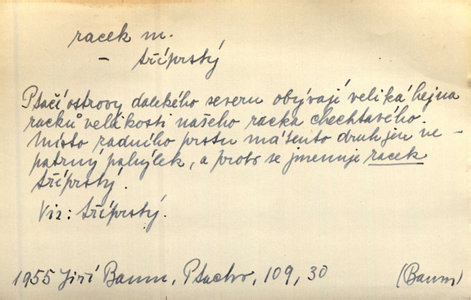 racek m.
– tříprstý
Ptačí ostrovy dalekého severu obývají veliká hejna
racků velikosti našeho racka chechtavého.
Místo zadního prstu má tento druh jen ne-
patrný pahýlek, a proto se jmenuje racek
tříprstý.
Viz: tříprstý.
1955 Jiří Baum, Ptactvo, 109, 30 (Baum)